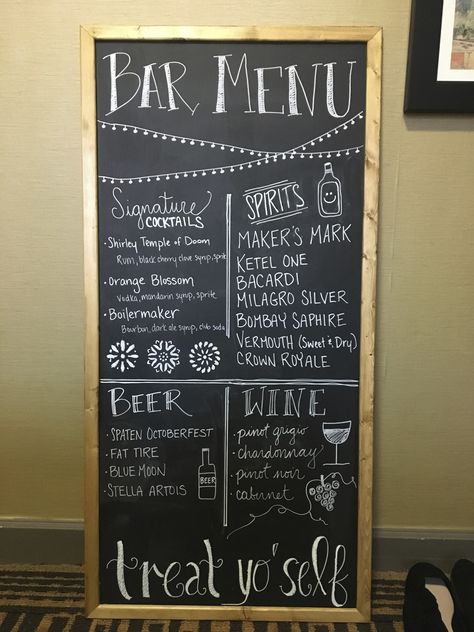 BAR MENU
Signature
COCKTAILS
· Shirley Temple of Doom
Rum, black cherry clove syrup, sprite
· Orange Blossom
Vodka, mandarin syrup, sprite
· Boilermaker
Bourbon, dark ale syrup, club soda
SPIRITS
MAKER'S MARK
KETEL ONE
BACARDI
MILAGRO SILVER
BOMBAY SAPHIRE
VERMOUTH (Sweet & Dry)
CROWN ROYALE
BEER
· SPATEN OCTOBERFEST
· FAT TIRE
· BLUE MOON
· STELLA ARTOIS
BEER
WINE
· pinot grigio
· chardonnay
· pinot noir
· cabinet
treat yo' self